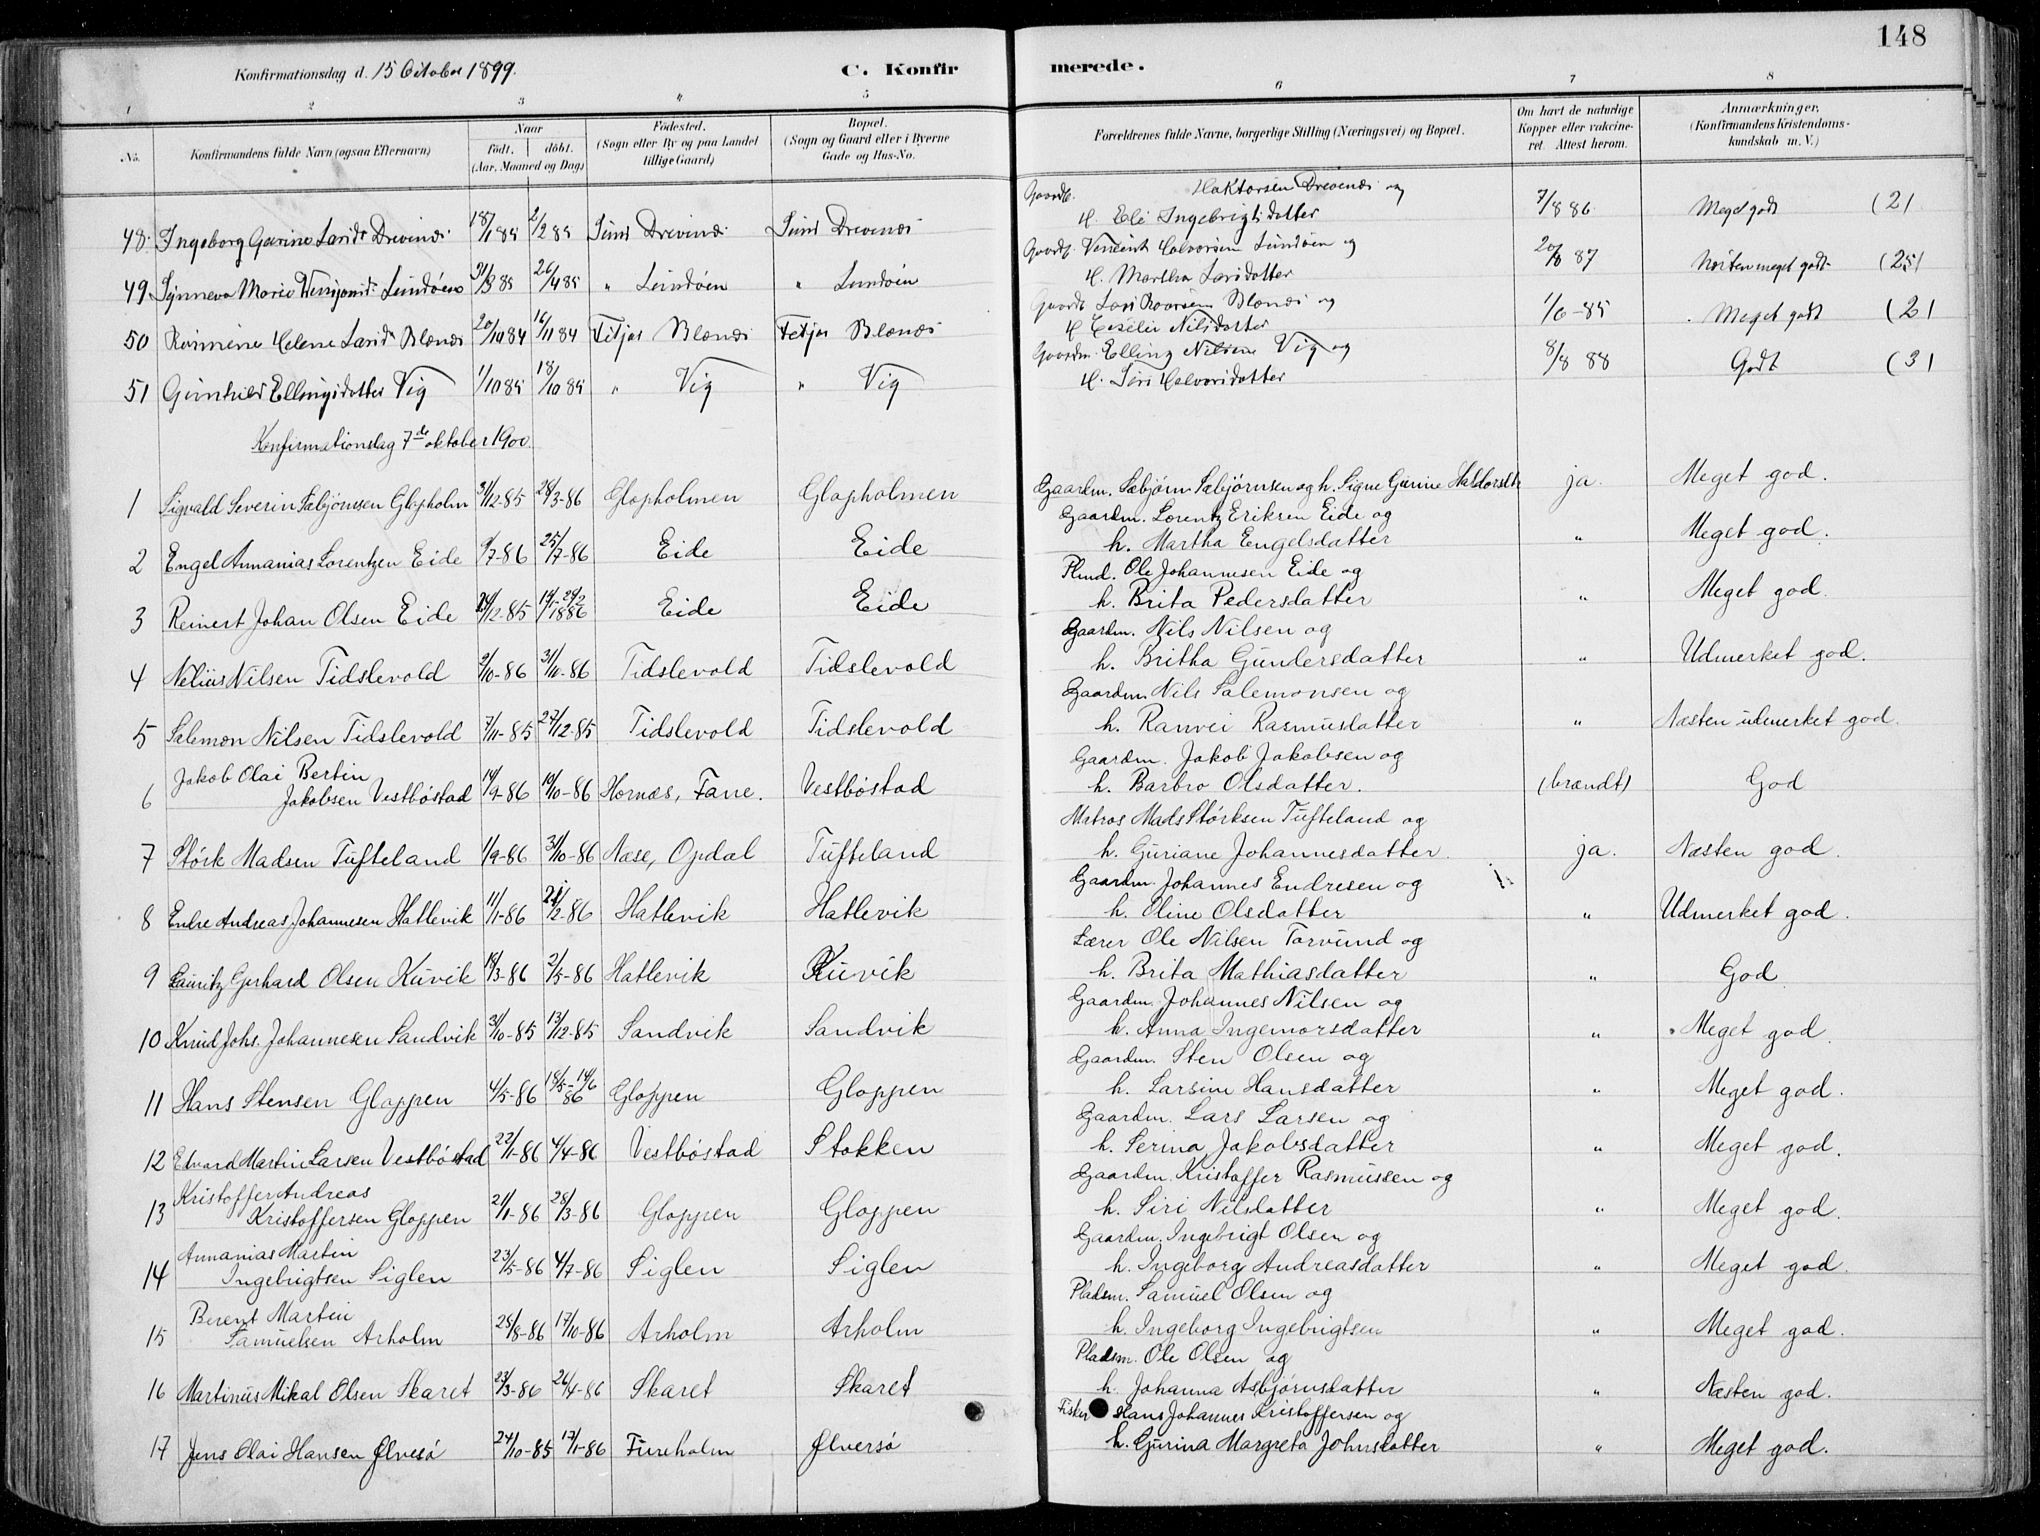 148
Konfirmationsdag d. 15 October 1899.
C. Konfirmerede.
1 2 3 " 5 6 7 8
No. Konfirmandens fulde Navn (ogsaa Efternavn) Naar født. døbt. (Aar, Maaned og Dag) Fødested. (Sogn eller By og paa Landet tillige Gaard) Bopæl. (Sogn og Gaard eller i Byerne Gade og Hus-No. Forældrenes fulde Navne, borgerlige Stilling (Næringsvei) og Bopæl. Om havt de naturlige Kopper eller vakcineret. Attest herom. Anmærkninger. (Konfirmandens Kristendomskundskab m. V.)
Gaardb. Haktorsen Drevenæs og
48. Ingeborg Gurine Larsd. Drevenæs 18/1 85 2/2 85 Sund Drevenæs Sund Drevenæs H. Eli Ingebrigtsdatter 7/8 86 Meget godt (2)
Gaardb. Halvorsen Lundøen og
49 Synneva Marie Lundøen 31/3 85 26/4 85 " Lundøen " Lundøen H. Martha Larsdatter 20/8 87 Næsten meget godt (2,5)
Gaardb Lars Roarsen Blænes og
50 Helene Larsd. Blænes 20/10 84 16/11 84 Fitjar Blænes Fitjar Blænes H Nilsdatter 1/6-85 Meget godt (2)
Gaardm. Elling Nilsen Vig og
51 Gunhild Ellingsdatter Vig 1/10 85 18/10 85 " Vig " Vig H. Siri Halvorsdatter 8/8 88 Godt (3)
Konfirmationsdag 7de oktober 1900.
1 Sigvald Severin Sæbjørnsen Glopholm 31/12-85 28/3-86 Glopholmen Glopholmen Gaardm. Sæbjørn Sæbjørnsen og h. Signe Gurine Haldorsdtr ja. Meget god.
Gaardm. Lorentz Eriksen Eide og
2 Engel Annanias Lorentzen Eide 9/7-86 25/7-86 Eide Eide h. Martha Engelsdatter " Meget god.
Plmd. Ole Johannesen Eide og
3 Reinert Johan Olsen Eide 24/12-85 14/1-24/2 1886 Eide Eide h. Brita Pedersdatter " Meget god.
Gaardm. Nils Nilsen og
4 Nelius Nilsen Tidslevold 2/10-86 31/10-86 Tidslevold Tidslevold h. Britha Gundersdatter " Udmerket god.
Gaardm Nils Salemonsen og
5 Salemon Nilsen Tidslevold 7/11-85 27/12-85 Tidslevold Tidslevold h. Ranvei Rasmusdatter " Næsten udmerket god.
Gaardm. Jakob Jakobsen og
6 Jakob Olai Bertin
Jakobsen Vestbøstad 14/9-86 10/10-86 Hornæs, Fane. Vestbøstad h. Barbro Olsdatter. (brændt) God
Matros Mads Størksen Tufteland og
7 Størk Madsen Tufteland 1/9-86 31/10-86 Næse, Opdal Tufteland h. Guriane Johannesdatter. ja. Næsten god.
Gaardm. Johannes Endresen og
8 Endre Andreas Johannesen Hatlevik 11/1-86 21/2-86 Hatlevik Hatlevik h. Oline Olsdatter " Udmerket god.
Lærer Ole Nilsen Torvund og
9 Lauritz Gerhard Olsen Kuvik 18/3-86 2/5-86 Hatlevik Kuvik h. Brita Mathiasdatter " God
Gaardm. Johannes Nilsen og
10 Knud Johs. Johannesen Sandvik 31/10-85 13/12-85 Sandvik Sandvik h. Anna Ingemorsdatter " Meget god.
Gaardm. Sten Olsen og
11 Hans Stensen Gloppen 4/5-86 18/5-14/6 86 Gloppen Gloppen h. Larsine Hansdatter " Meget god.
Gaardm. Lars Larsen og
12 Edvard Martin Larsen Vestbøstad 22/1-86 4/4-86 Vestbøstad Stokken h. Serina Jakobsdatter " Meget god.
Gaardm. Kristoffer Rasmussen og
13 Kristoffer Andreas
Kristoffersen Gloppen 21/1-86 28/3-86 Gloppen Gloppen h. Siri Nilsdatter " Meget god.
Gaardm. Ingebrigt Olsen og
14 Annanias Martin
Ingebrigtsen Siglen 23/5-86 4/7-86 Siglen Siglen h. Ingeborg Andreasdatter " Meget god.
Pladsm. Samuel Olsen og
15 Berent Martin
Samuelsen Arholm 25/8-86 17/10-86 Arholm Arholm h. Ingeborg Ingebrigtsen " Meget god.
Pladsm. Ole Olsen og
16 Martinus Mikal Olsen Skaret 23/3-86 26/4-86 Skaret Skaret h. Johanna Asbjørnsdatter " Næsten god.
Fisker Hans Johannes Kristoffersen og
17 Jens Olai Hansen Ølvesø 24/10-85 17/1-86 Fureholm Ølversø h. Gurina Margreta Johnsdatter " Meget god.